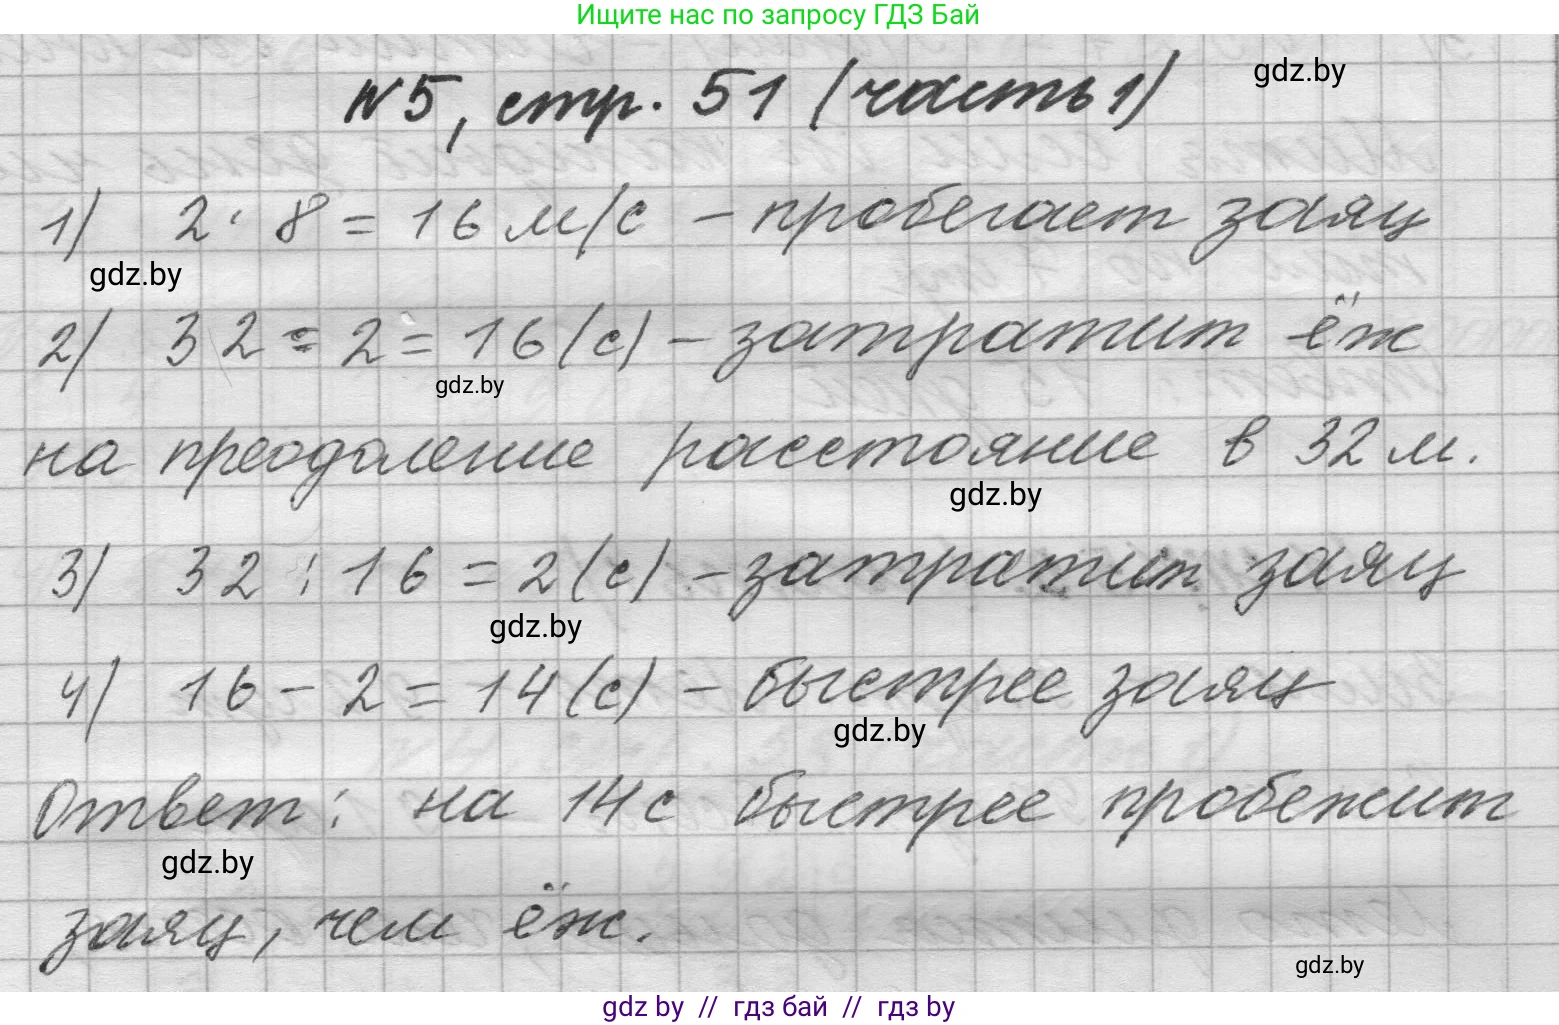 Ищите нас по запросу ГДЗ Бай
gdz.by
№5, стр. 51 (часть 1)
1) 2 · 8 = 16 м/с – пробегает заяц
gdz.by
2) 32 : 2 = 16 (с) – затратит ёж
gdz.by
на преодоление расстояние в 32 м.
gdz.by
3) 32 : 16 = 2 (с) – затратит заяц
gdz.by
4) 16 – 2 = 14 (с) – быстрее заяц
gdz.by
Ответ: на 14 с быстрее пробежит
gdz.by
заяц, чем ёж.
gdz.by
gdz by // гдз бай // гдз by